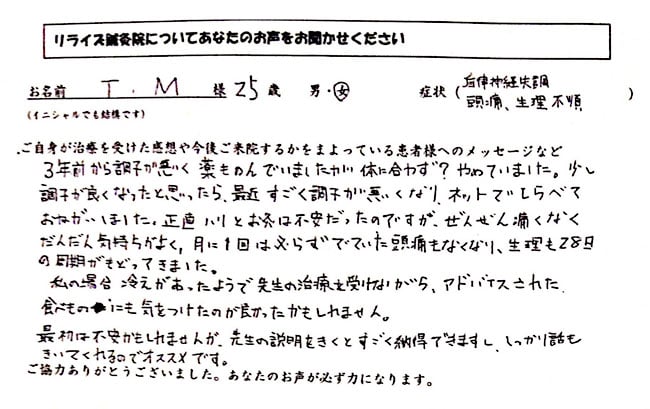 リライズ鍼灸院についてあなたのお声をお聞かせください
お名前 T.M 様 25歳 男・女 症状(自律神経失調
頭痛、生理不順)
(イニシャルでも結構です)
ご自身が治療を受けた感想や今後ご来院するかをまよっている患者様へのメッセージなど
3年前から調子が悪く 薬ものんでいましたが 体に合わず? やめていました。少し
調子が良くなったと思ったら、最近 すごく調子が悪いくなり、ネットでしらべて
おねがいしました。正直 ハリとお灸は不安だったのですが、ぜんぜん痛くなく
だんだん気持ちがよく、月に1回は必らずでていた頭痛もなくなり、生理も28日
の周期がもどってきました。
私の場合 冷えがあったようで先生の治療を受けながら、アドバイスされた
食べものにも気をつけたのが良かったかもしれません。
最初は不安かもしれませんが、先生の説明をきくとすごく納得できますし、しっかり話も
きいてくれるのでオススメです。
ご協力ありがとうございました。あなたのお声が必ず力になります。